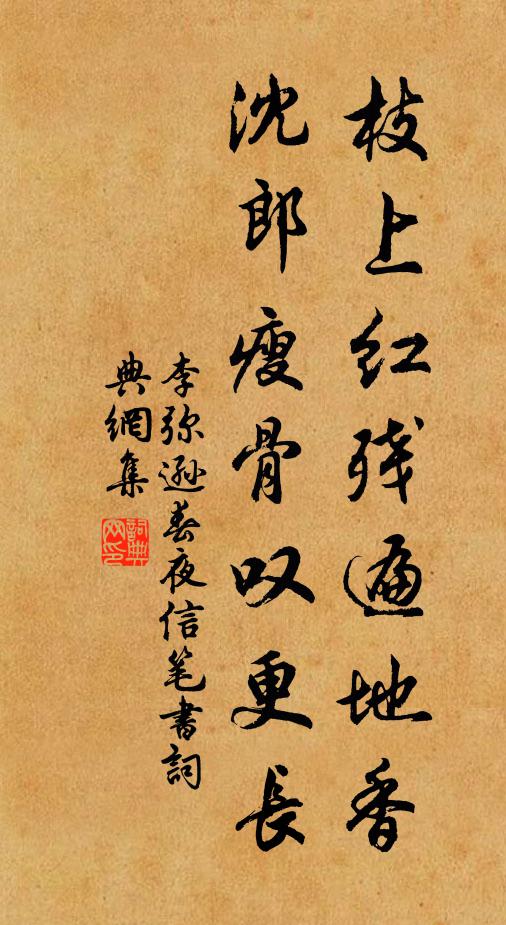 枝上红残遍地香
沈郎瘦骨叹更長
李弥逊春夜信笔書詞
典網集
詞典网印